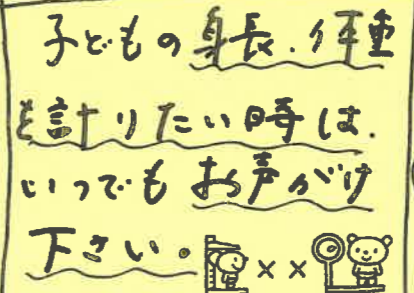 子どもの身長.体重
を計りたい時は.
いつでもお声がけ
下さい。
××